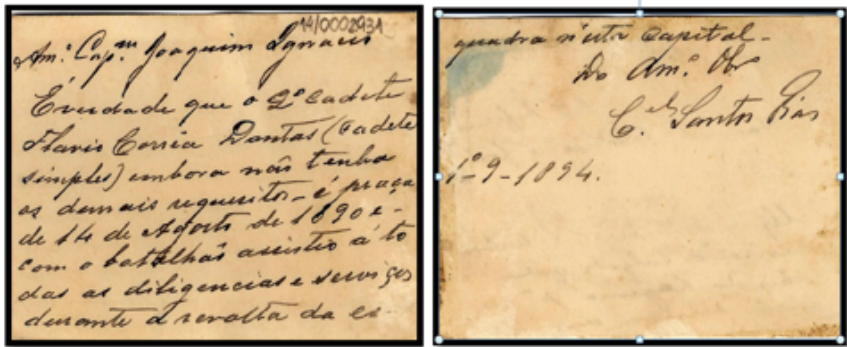 14/0002931
Am.º Cap.m Joaquim Ignacio
É verdade que o 2º Cadete
Flavio Corrêa Dantas (Cadete
simples) embora não tenha
os demais requesitos - é praça
de 14 de Agosto de 1890 e -
com o batalhão assistio á to
das as diligencias e serviços
durante a revolta da es-
quadra n'esta Capital -
Do Am.º Obr
C.el Santos Dias
1º-9-1894.